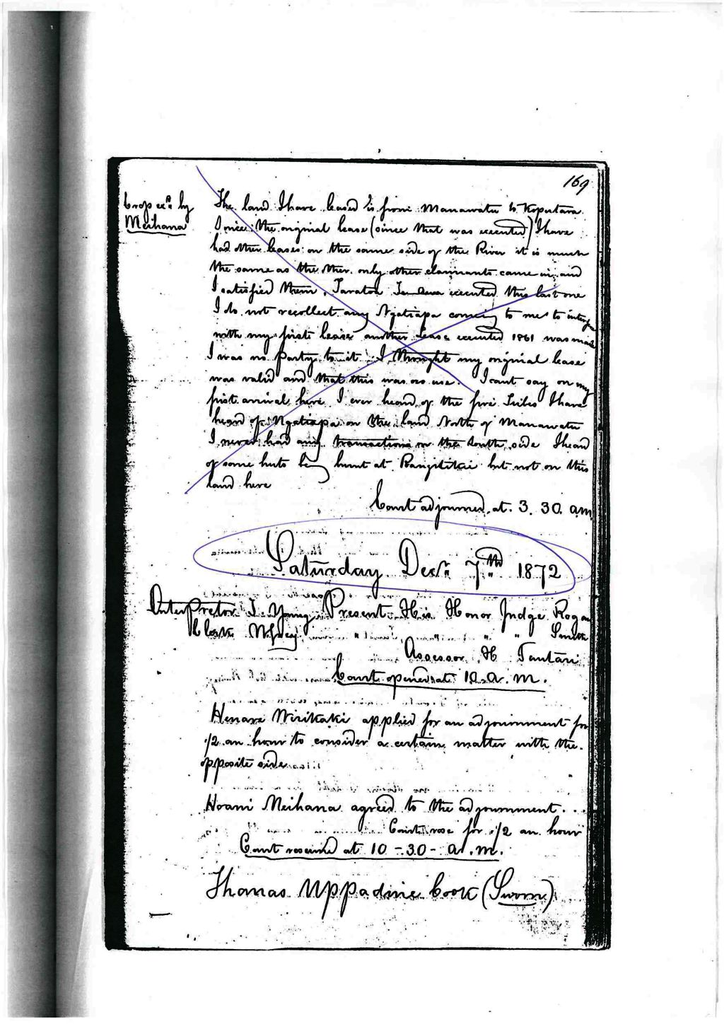 169
Cross exd by
Meihana
The land I have leased is from Manawatu to Koputara
Since the original lease (since that was executed) I have
had other leases on the same side of the River it is much
the same as the other. only other claimants came in and
I satisfied them, executed this last one
I do not recollect any Ngatiapa coming to me to
with my first lease another Lease executed 1861 was
I was no party to it. I thought my original lease
was valid and that this was no use. I cant say on my
first arrival here I ever heard of the five Tribes I have
heard of Ngatiapa on the land North of Manawatu
I never had any transactions on the South side I heard
of some huts being burnt at Rangitikei but not on this
land here
Court adjourned at 3.30 a.m
Saturday Decr 7th 1872
Interpreter J. Young Present His Honor Judge Rogan
Clerk " " " Smith
Assessor H
Court opened at 10 a.m.
Henare applied for an adjournment for
1/2 an hour to consider a certain matter with the
opposite side
Hoani Meihana agreed to the adjournment..
Court rose for 1/2 an hour
Court resumed at 10-30- a.m.
Thomas Uppadine Cook (Sworn)